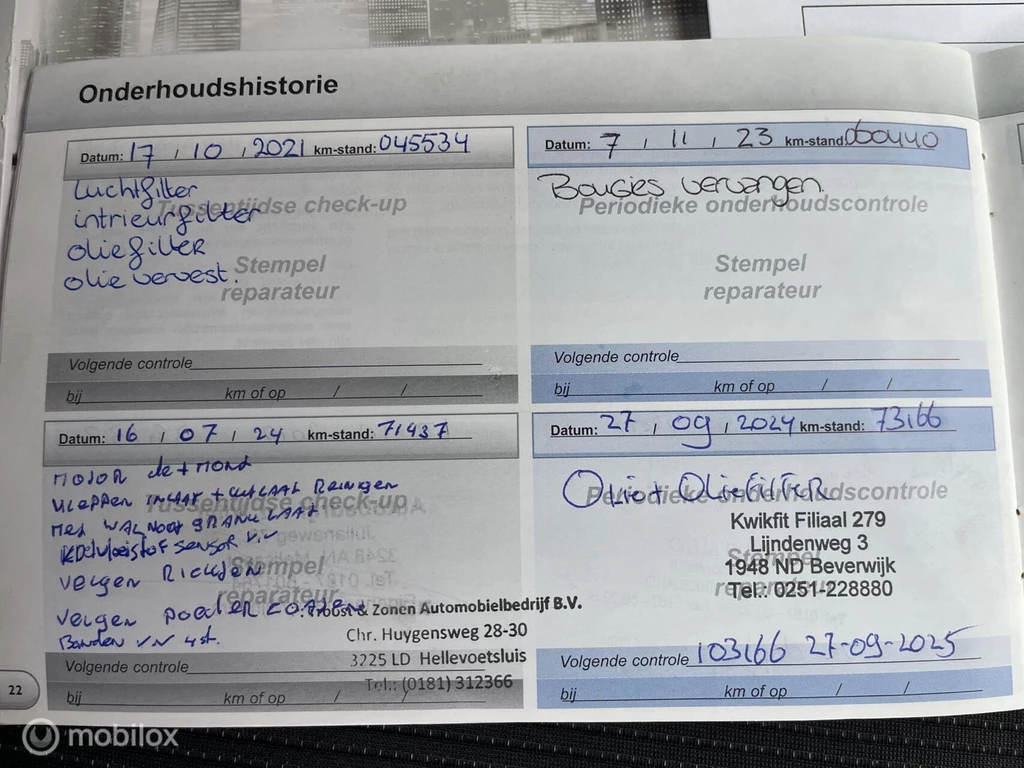 Onderhoudshistorie
Datum: 17 / 10 / 2021 km-stand: 045534
Luchtfilter
intrieurfilter
Tussentijdse check-up
oliefilter
olie ververst.
Stempel
reparateur
Volgende controle
bij km of op / /
Datum: 7 / 11 / 23 km-stand: 060440
Bougies vervangen
Periodieke onderhoudscontrole
Stempel
reparateur
Volgende controle
bij km of op / /
Datum: 16 / 07 / 24 km-stand: 71437
MOTOR de+mont
kleppen inlaat + uitlaat Reinigen
Tussentijdse check-up
met WALNOOT GRANULAAT
koelvloeistof sensor v.v
velgen Richten
Stempel
reparateur
velgen poeder coaten
Banden v.v 4 st.
Troost & Zonen Automobielbedrijf B.V.
Chr. Huygensweg 28-30
3225 LD Hellevoetsluis
Tel.: (0181) 312366
Volgende controle
bij km of op / /
Datum: 27 / 09 / 2024 km-stand: 73166
Olie + Oliefilter
Periodieke onderhoudscontrole
Kwikfit Filiaal 279
Lijndenweg 3
Stempel
1948 ND Beverwijk
reparateur
Tel.: 0251-228880
Volgende controle 103166 27-09-2025
bij km of op / /
22
mobilox